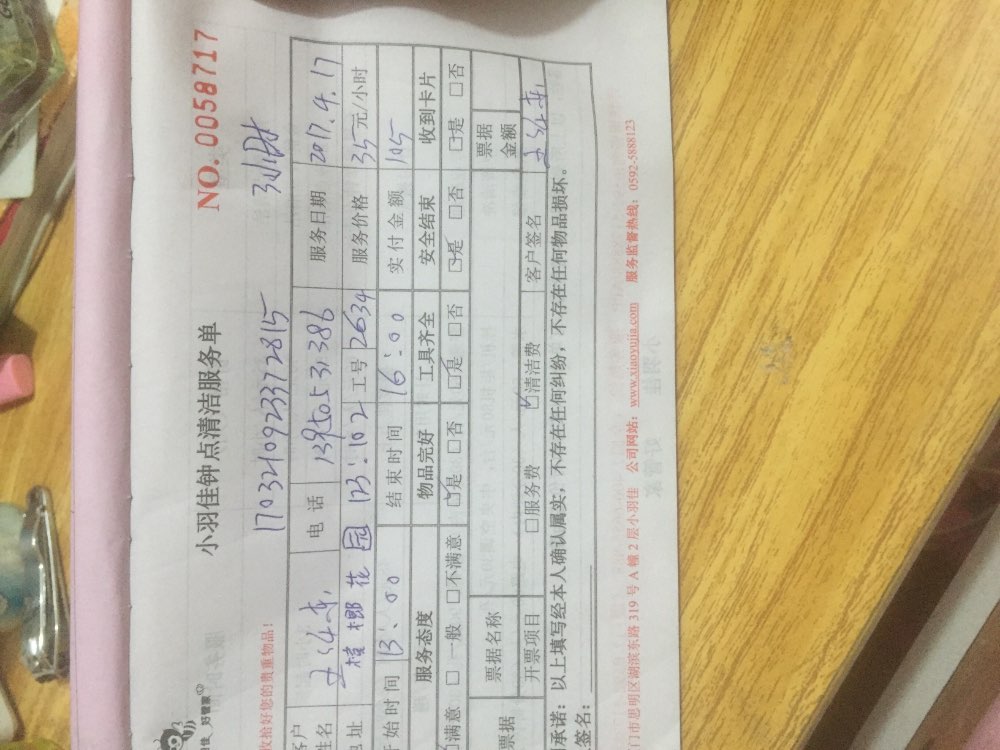 佳_好管家
小羽佳钟点清洁服务单
NO. 0058717
收拾好您的贵重物品!
1703210923372815 3小时
客户
姓名 电话 13950531386 服务日期 2017.4.17
地址 槟榔花园 123:102 工号 2634 服务价格 35元/小时
开始时间 13:00 结束时间 16:00 实付金额 105
服务态度 物品完好 工具齐全 安全结束 收到卡片
☑满意 □一般 □不满意 ☑是 □否 ☑是 □否 ☑是 □否 □是 □否
票据 票据名称 票据金额
开票项目 □服务费 ☑清洁费 客户签名
承诺：以上填写经本人确认属实，不存在任何纠纷，不存在任何物品损坏。
签名：
门市思明区湖滨东路 319 号 A 幢 2 层小羽佳 公司网站：www.xiaoyujia.com 服务监督热线：0592-5888123